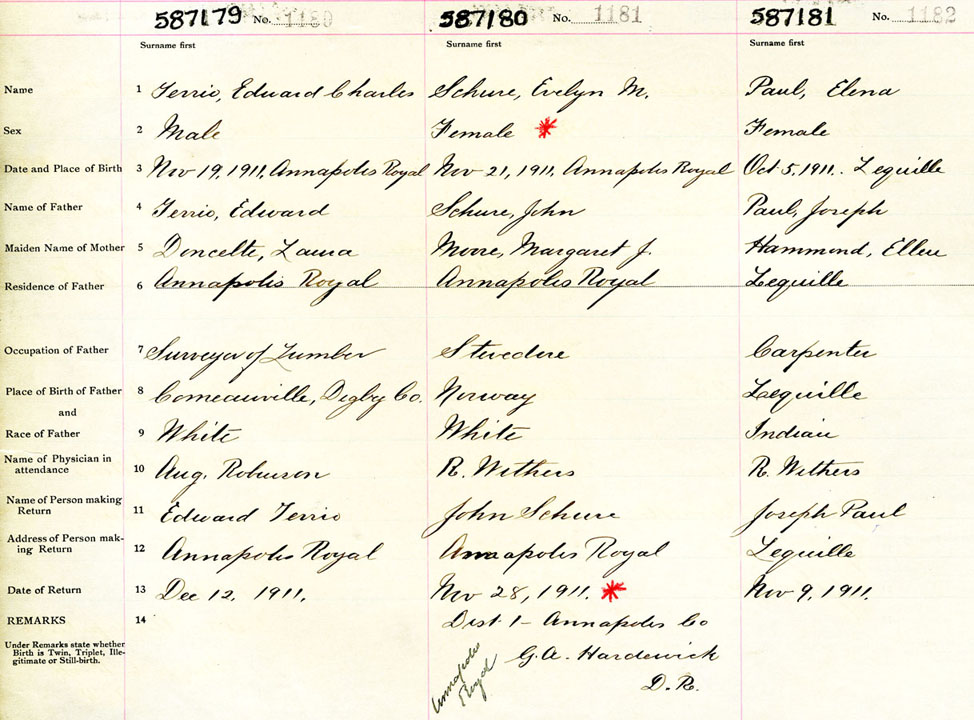 587179 No. 1180 587180 No. 1181 587181 No. 1182
Surname first Surname first Surname first
Name 1 Terrio, Edward Charles Schure, Evelyn M. Paul, Elena
Sex 2 Male Female * Female
Date and Place of Birth 3 Nov 19, 1911, Annapolis Royal Nov 21, 1911, Annapolis Royal Oct 5, 1911. Lequille
Name of Father 4 Terrio, Edward Schure, John Paul, Joseph
Maiden Name of Mother 5 Doncelte, Laura Moore, Margaret J. Hammond, Ellen
Residence of Father 6 Annapolis Royal Annapolis Royal Lequille
Occupation of Father 7 Surveyor of Lumber Stevedore Carpenter
Place of Birth of Father 8 Comeauville, Digby Co. Norway Lequille
and
Race of Father 9 White White Indian
Name of Physician in
attendance 10 Aug. Robinson R. Withers R. Withers
Name of Person making
Return 11 Edward Terrio John Schure Joseph Paul
Address of Person mak-
ing Return 12 Annapolis Royal Annapolis Royal Lequille
Date of Return 13 Dec 12, 1911. Nov 28, 1911. * Nov 9, 1911.
REMARKS 14 Dist 1 - Annapolis Co
Under Remarks state whether
Birth is Twin, Triplet, Ille-
gitimate or Still-birth.
G.A. Hardwick
D.R.
Annapolis
Royal